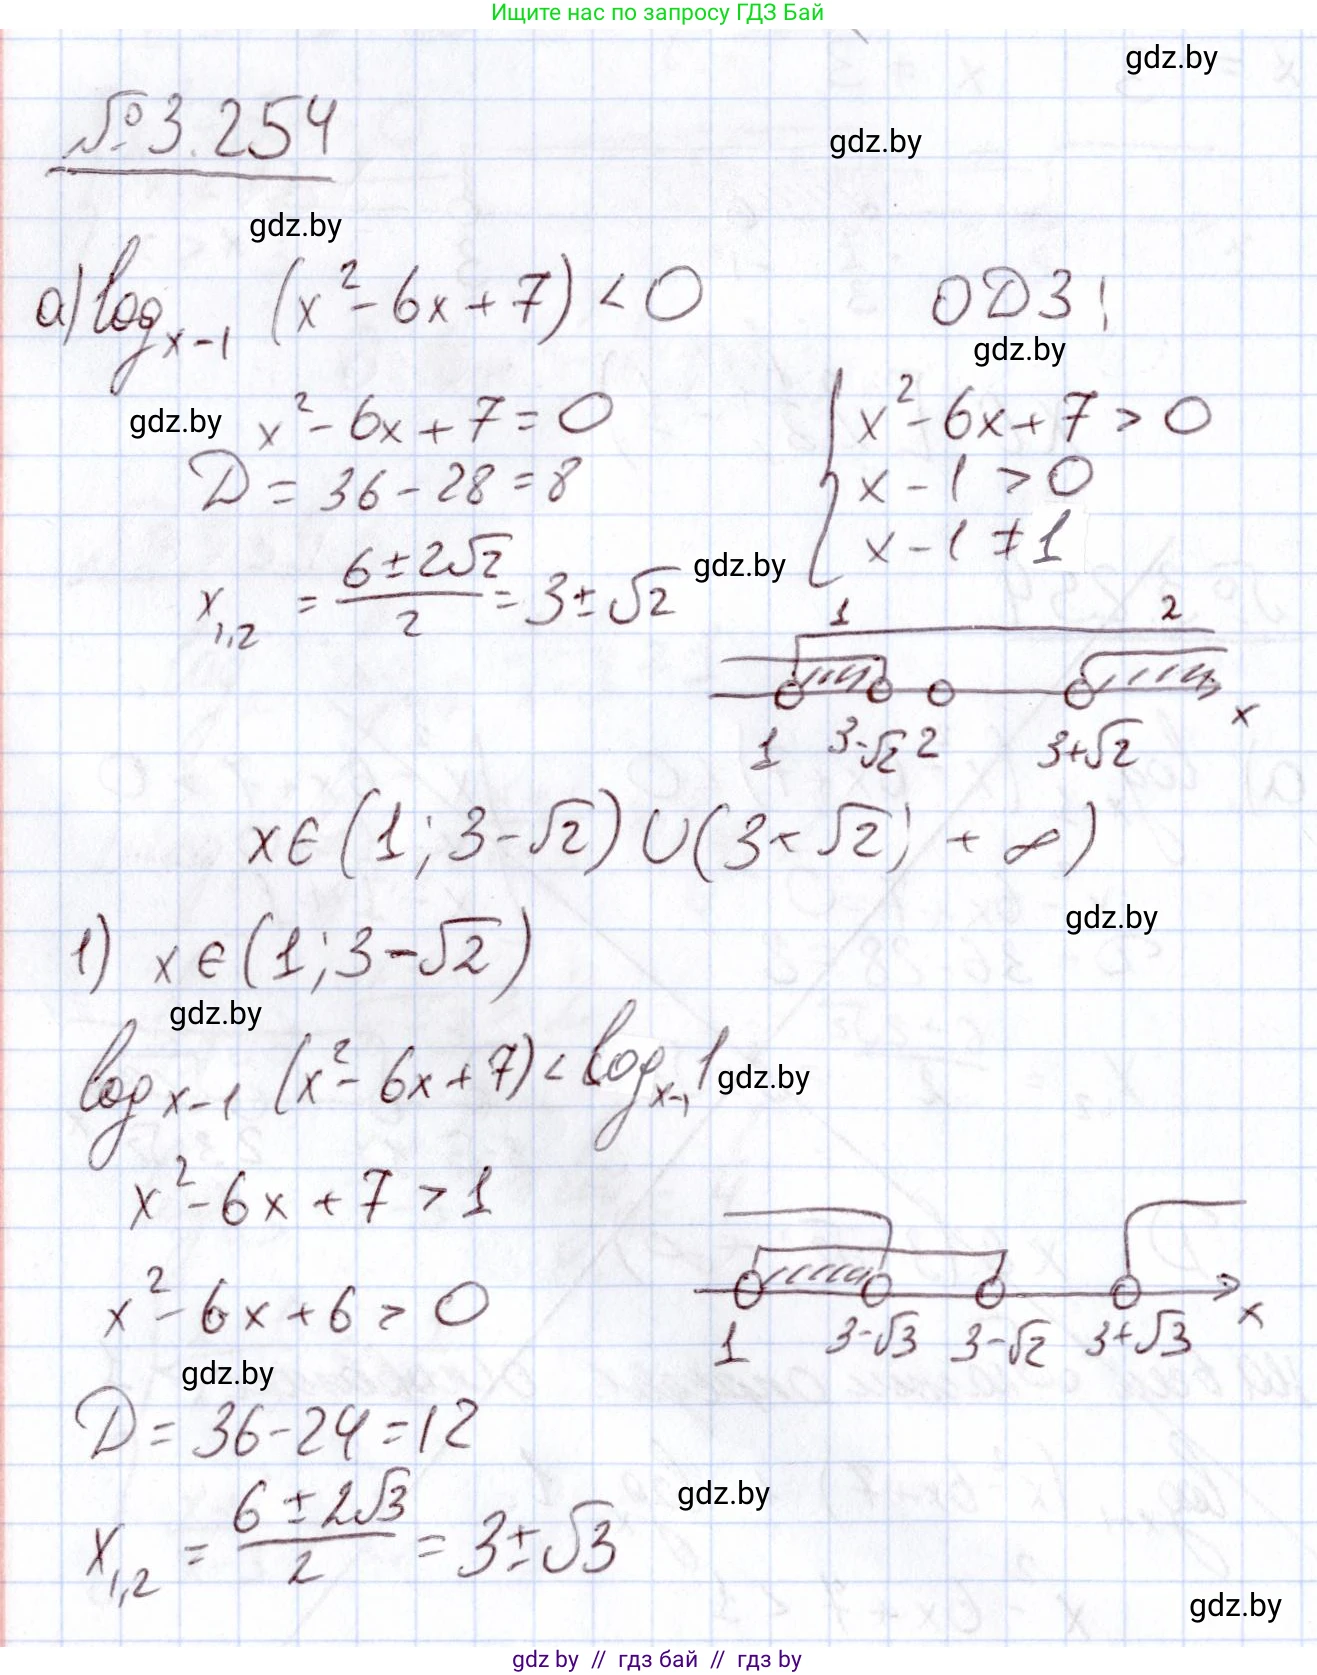 Ищите нас по запросу ГДЗ Бай
gdz.by
№3.254
gdz.by
gdz.by
а) log_{x-1} (x² - 6x + 7) < 0
ОДЗ!
gdz.by
gdz.by
x² - 6x + 7 = 0
{ x² - 6x + 7 > 0
D = 36 - 28 = 8
x - 1 > 0
x - 1 ≠ 1
x_{1,2} = (6 ± 2√2)/2 = 3 ± √2
gdz.by
1 2
1 3-√2 2 3+√2 x
x ∈ (1; 3 - √2) ∪ (3 + √2; + ∞)
gdz.by
1) x ∈ (1; 3 - √2)
gdz.by
log_{x-1} (x² - 6x + 7) < log_{x-1} 1
gdz.by
x² - 6x + 7 > 1
x² - 6x + 6 > 0
1 3-√3 3-√2 3+√3 x
gdz.by
D = 36 - 24 = 12
gdz.by
x_{1,2} = (6 ± 2√3)/2 = 3 ± √3
gdz.by
gdz by // гдз бай // гдз by